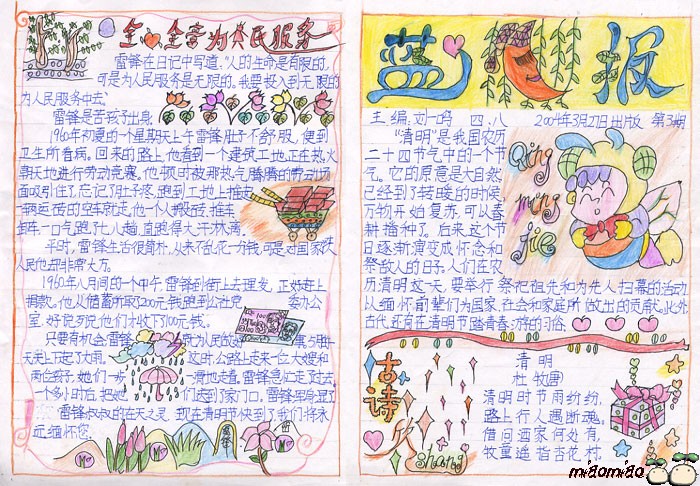 全心全意为人民服务
雷锋在日记中写道:"人的生命是有限的,
可是为人民服务是无限的。我要投入到无限的
为人民服务中去。
雷锋是苦孩子出身
1960年初夏的一个星期天上午雷锋肚子不舒服,便到
卫生所看病。回来的路上,他看到一个建筑工地正在热火
朝天地进行劳动竞赛。他顿时被那热气腾腾的劳动场
面吸引住了,忘记了肚子疼,跑到工地上推走
一辆运砖的空车就走,他一个人搬砖,推车
一口气跑了七八趟,直跑得大汗淋漓。
平时,雷锋生活很简朴,从来不乱花一分钱,可是对国家
人民他却非常大方。
1960年八月间的一个中午,雷锋到街上去理发,正好赶上
捐款。他从储蓄所取200元钱跑到公社党委办公
室,好说歹说他们才收下了100元钱。
只要有机会雷锋就为人民做好
天天上下起了大雨,这时公路上走来一位大嫂和
两个孩子,她们一步一滑地走着,雷锋急忙走了过去,
一个多小时后,把她们送到了家门口,雷锋浑身湿了
雷锋叔叔的在天之灵,现在清明节快到了我们将永
远缅怀您。
蓝月报
主编:刘一鸣 四、八 2009年3月27日出版 第3期
"清明"是我国农历
二十四节气中的一个节
气。它的原意是大自然
已经到了转暖的时候
万物开始复苏,可以春
耕播种了。后来,这个节
日逐渐演变成怀念和
祭故人的日子。人们在农
历清明这一天,要举行祭祀祖先和为先人扫墓的活动
以缅怀前辈们为国家、社会和家庭所做出的贡献。此外
古代,还有在清明节踏青春游的习俗。
Qing
ming
jie
古诗欣
shang
清明
杜牧
清明时节雨纷纷,
路上行人遇断魂,
借问酒家何处有,
牧童遥指杏花村
miaomiao